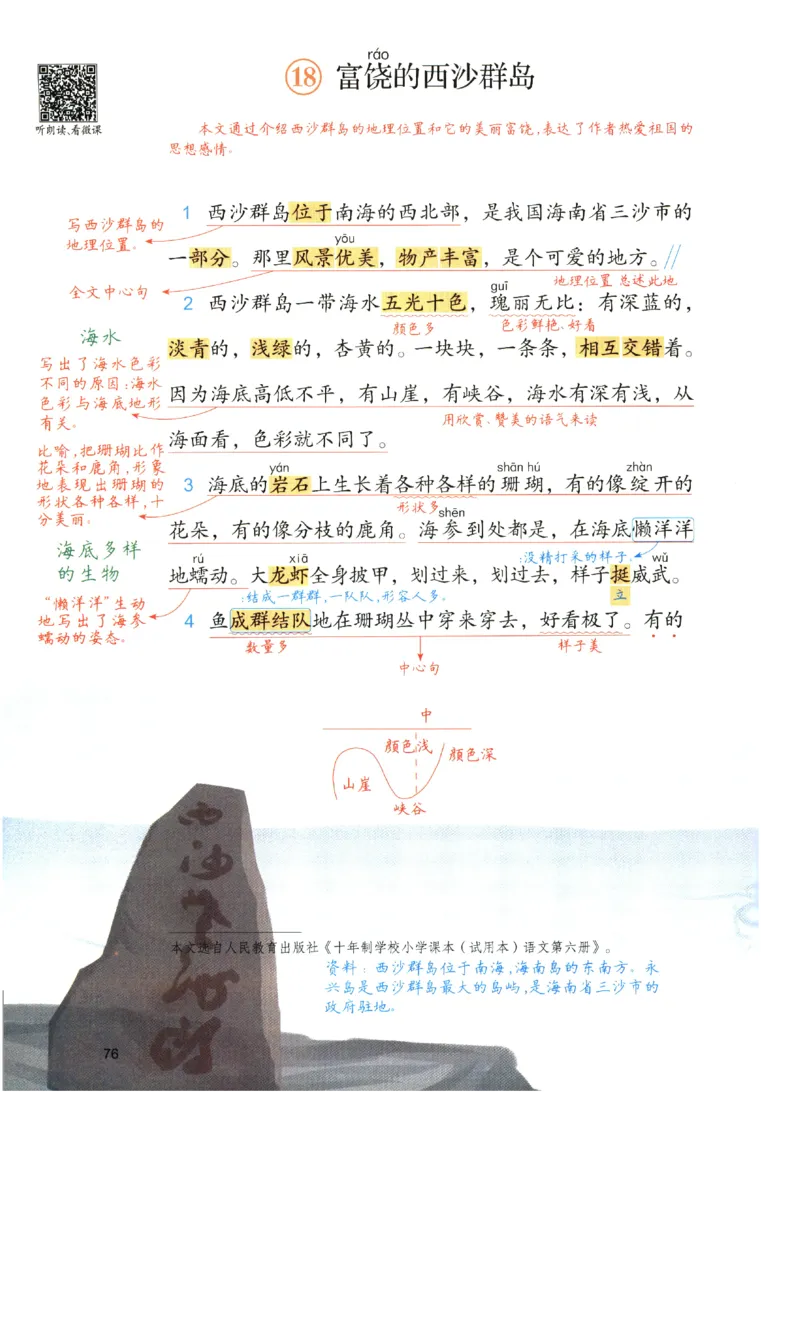 ráo
18 富饶的西沙群岛
听朗读、看微课
本文通过介绍西沙群岛的地理位置和它的美丽富饶,表达了作者热爱祖国的
思想感情。
1 西沙群岛位于南海的西北部，是我国海南省三沙市的
写西沙群岛的
地理位置。
yōu
一部分。那里风景优美，物产丰富，是个可爱的地方。//
全文中心句
地理位置 总述此地
guī
2 西沙群岛一带海水五光十色，瑰丽无比：有深蓝的，
颜色多
色彩鲜艳、好看
海水
淡青的，浅绿的，杏黄的。一块块，一条条，相互交错着。
写出了海水色彩
不同的原因:海水
色彩与海底地形
有关。
因为海底高低不平，有山崖，有峡谷，海水有深有浅，从
用欣赏、赞美的语气来读
海面看，色彩就不同了。
比喻,把珊瑚比作
花朵和鹿角,形象
地表现出珊瑚的
形状各种各样,十
分美丽。
yán shān hú zhàn
3 海底的岩石上生长着各种各样的珊瑚，有的像绽开的
形状多
shēn
花朵，有的像分枝的鹿角。海参到处都是，在海底懒洋洋
:没精打采的样子。
海底多样
的生物
rú xiā wǔ
地蠕动。大龙虾全身披甲，划过来，划过去，样子挺威武。
:结成一群群,一队队,形容人多。
立
“懒洋洋”生动
地写出了海参
蠕动的姿态。
4 鱼成群结队地在珊瑚丛中穿来穿去，好看极了。有的
数量多
样子美
中心句
中
颜色浅
颜色深
山崖
峡谷
西沙群岛
本文选自人民教育出版社《十年制学校小学课本（试用本）语文第六册》。
资料：西沙群岛位于南海,海南岛的东南方。永
兴岛是西沙群岛最大的岛屿,是海南省三沙市的
政府驻地。
76